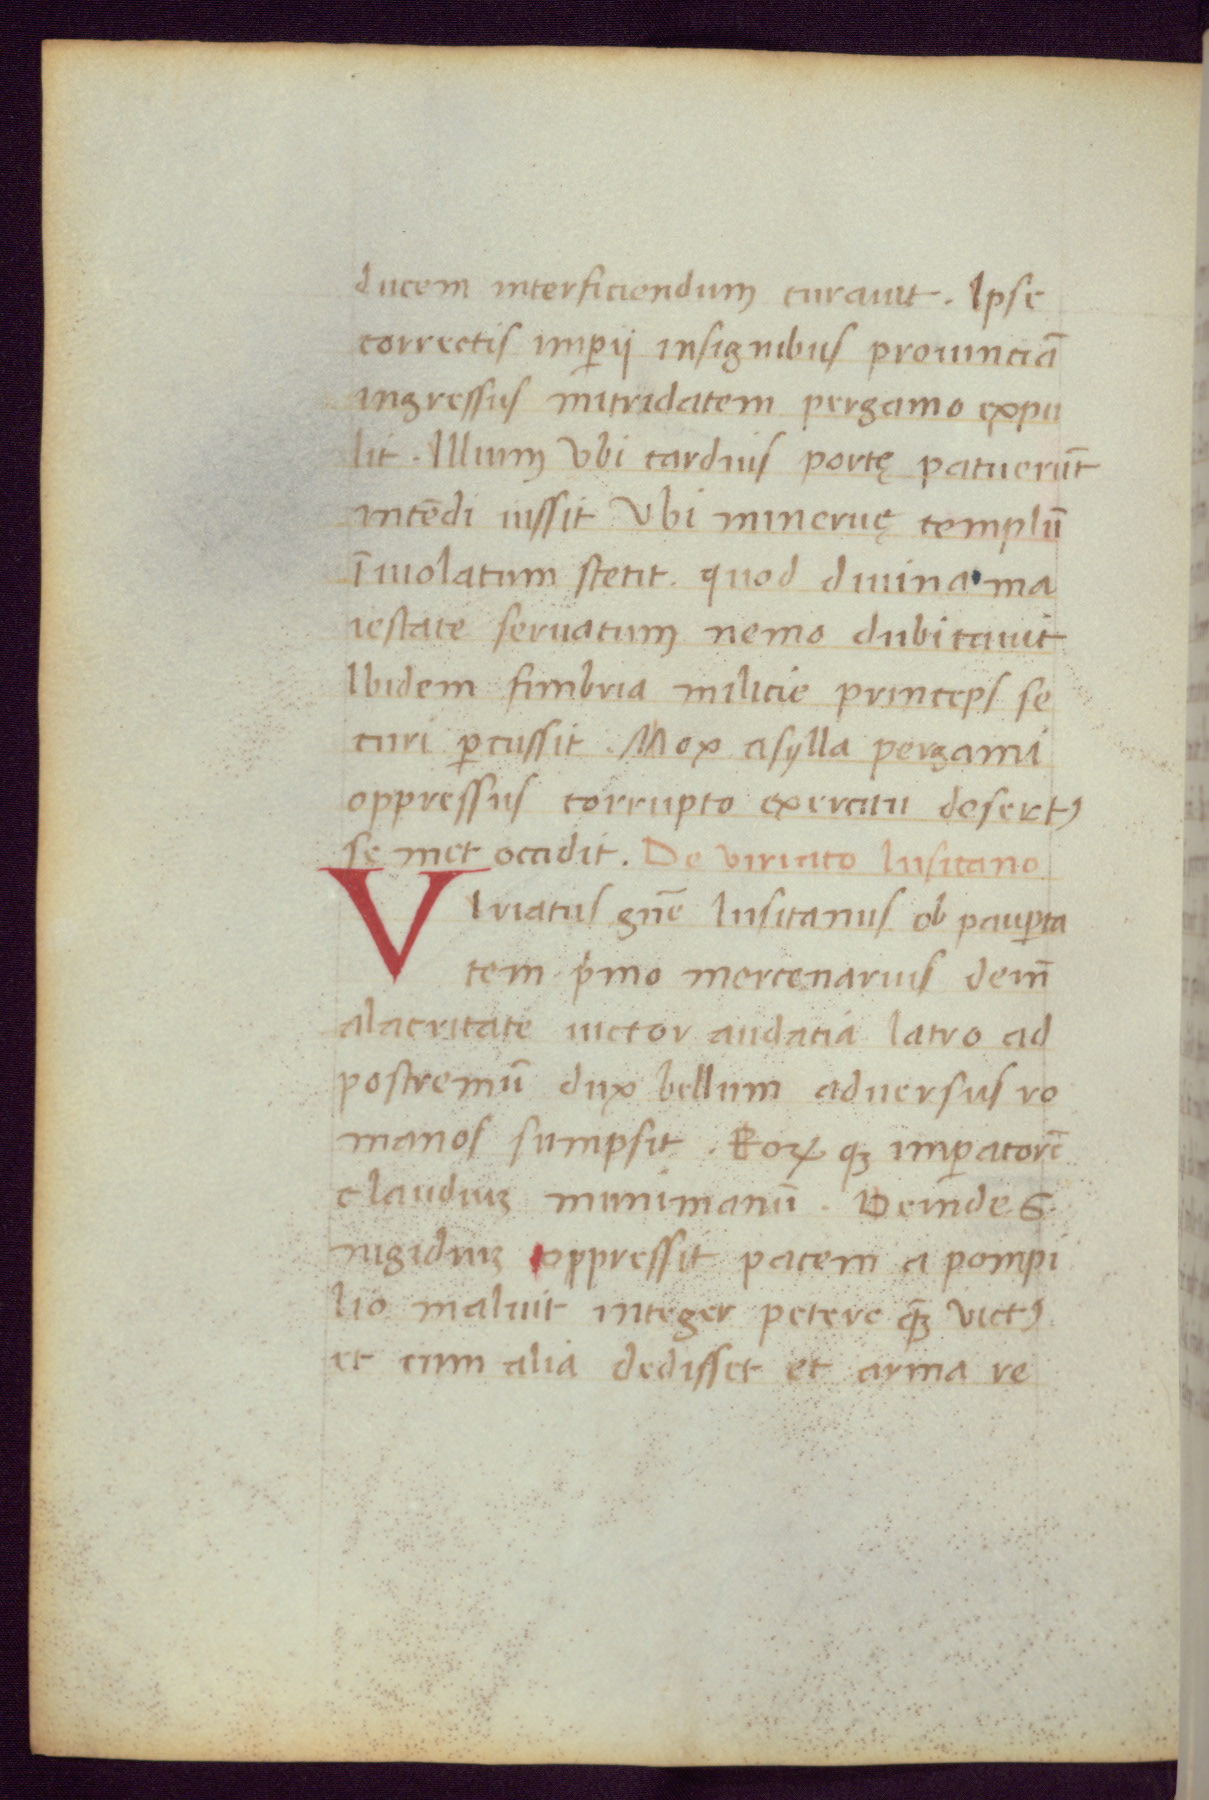 ducem interficiendum curauit. Ipse
correctis imp̄ij insignibus prouinciā
ingressus mitridatem pergamo expu
lit. Illium vbi tardius portę patuerūt
incēdi iussit Vbi mineruę templū
īuiolatum stetit. quod diuina ma
iestate seruatum nemo dubitauit
Ibidem fimbria milicie princeps se
curi p̄cussit. Mox asylla pergami
oppressus corrupto exercitu desertꝰ
se met occidit. De viriato lusitano
VIriatus gn̄e lusitanus ob paup̄ta
tem p̄mo mercenarius dein̄
alacritate uictor audatia latro ad
postremū dux bellum aduersus ro
manos sumpsit. Eoꝝ qꝫ imp̄atorē
claudiuꝫ munimanū. Deinde G.
nigidiuꝫ oppressit pacem a pompi
lio maluit integer petere q̄ꝫ victꝰ.
et cum alia dedisset et arma re